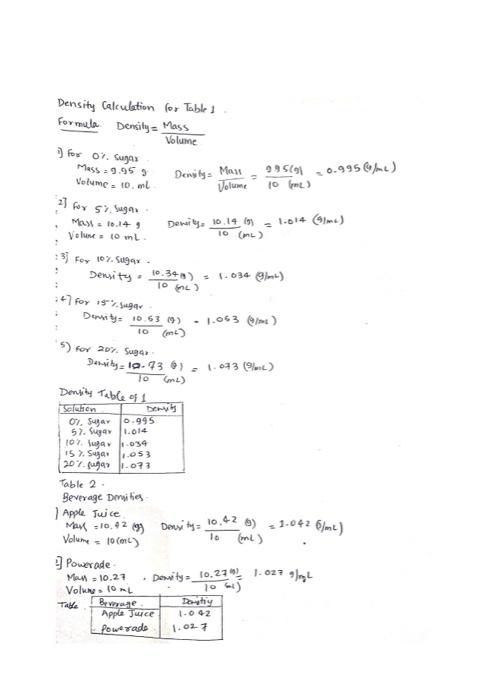 Density Calculation for Table 1.
Formula Density = Mass
Volume
1) For 0% Sugar
Mass = 9.95 g
Volume = 10. mL
Density = Mass / Volume = 9.95 (g) / 10 (mL) = 0.995 (g/mL)
2] For 5% Sugar.
Mass = 10.14 g
Volume = 10 mL.
Density = 10.14 (g) / 10 (mL) = 1.014 (g/mL)
3] For 10% Sugar.
Density = 10.34 (g) / 10 (mL) = 1.034 (g/mL)
4] For 15% Sugar
Density = 10.53 (g) / 10 (mL) = 1.053 (g/mL)
5) For 20% Sugar.
Density = 10.73 (g) / 10 (mL) = 1.073 (g/mL)
Density Table of 1
Solution Density
0% Sugar 0.995
5% Sugar 1.014
10% Sugar 1.034
15% Sugar 1.053
20% Sugar 1.073
Table 2.
Beverage Densities.
1] Apple Juice.
Mass = 10.42 (g)
Volume = 10 (mL)
Density = 10.42 (g) / 10 (mL) = 1.042 (g/mL)
2] Powerade.
Mass = 10.27
Volume = 10 mL
Density = 10.27 (g) / 10 (mL) = 1.027 g/mL
Table
Beverage. Density
Apple Juice 1.042
Powerade 1.027